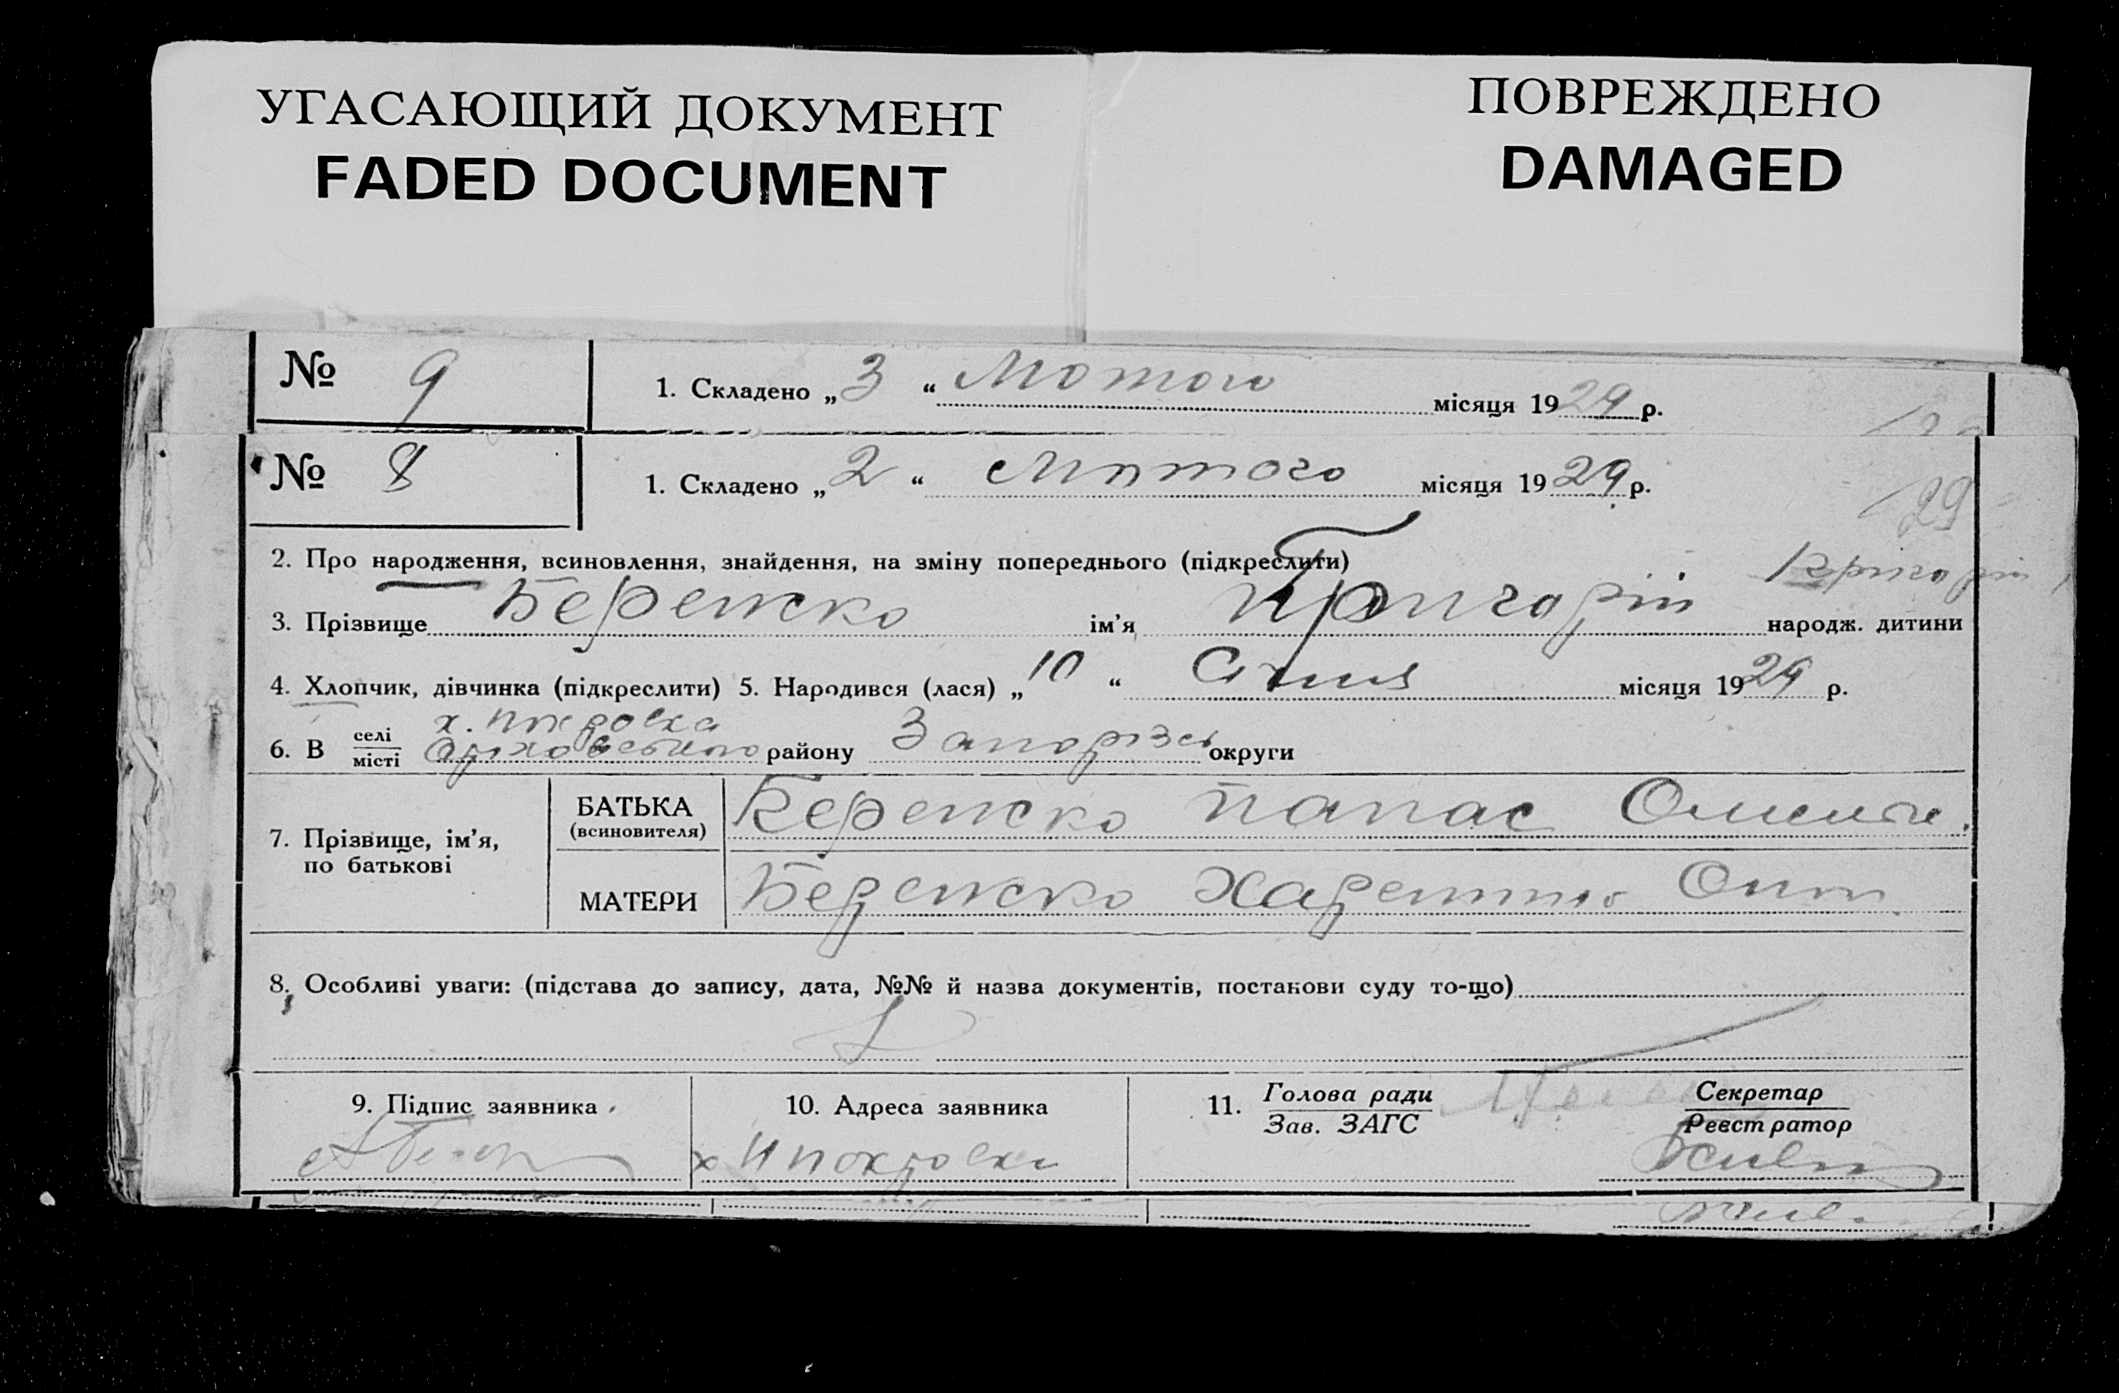 УГАСАЮЩИЙ ДОКУМЕНТ
FADED DOCUMENT
ПОВРЕЖДЕНО
DAMAGED
№ 9 1. Складено „3“ Лютого місяця 1929 р.
№ 8 1. Складено „2“ Лютого місяця 1929 р.
29
2. Про народження, всиновлення, знайдення, на зміну попереднього (підкреслити)
Григорій
3. Прізвище Бережко ім'я Григорій народж. дитини
4. Хлопчик, дівчинка (підкреслити) 5. Народився (лася) „10“ Січня місяця 1929 р.
х. Покровка
6. В селі місті Оріховського району Запорізь округи
7. Прізвище, ім'я, по батькові
БАТЬКА (всиновителя) Бережко Панас Омельк.
МАТЕРИ Бережко Харитина
8. Особливі уваги: (підстава до запису, дата, №№ й назва документів, постанови суду то-що)
9. Підпис заявника
10. Адреса заявника
х Н покровка
11. Голова ради
Зав. ЗАГС
Секретар
Реєстратор